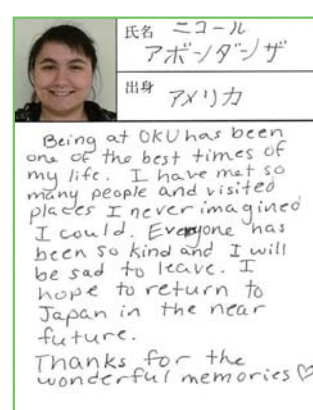 氏名 ニコール
アボンダンザ
出身 アメリカ
Being at OKU has been
one of the best times of
my life. I have met so
many people and visited
places I never imagined
I could. Everyone has
been so kind and I will
be sad to leave. I
hope to return to
Japan in the near
future.
Thanks for the
wonderful memories ♡